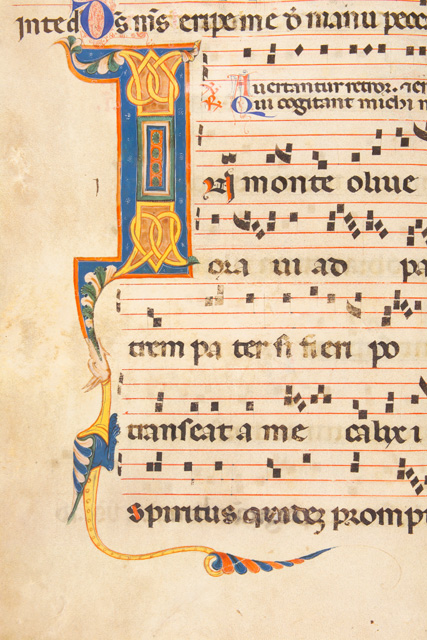 inted Os m̄s eripe me d̄ manu pecc
Auertantur retror.
Qui cogitant michi m
IN monte oliue
ora ui ad pa
trem pa ter si fi eri po
transeat a me calix i
spiritus quidez prompt